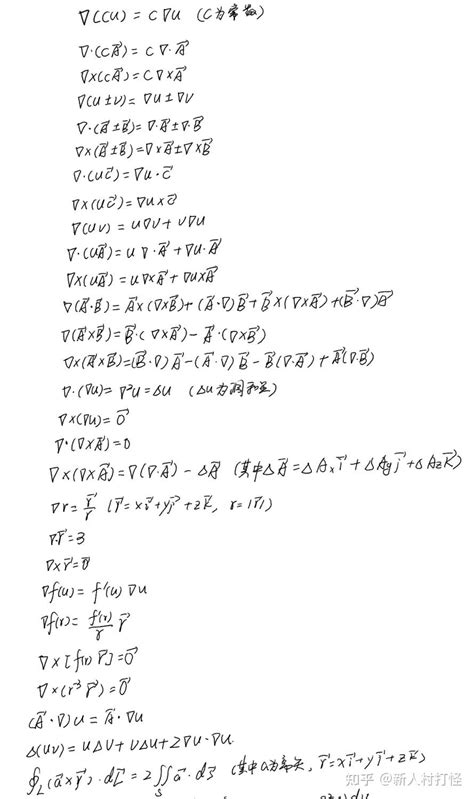 ∇(cu) = c∇u (c为常数)
∇·(cA⃗) = c∇·A⃗
∇×(cA⃗) = c∇×A⃗
∇(u±v) = ∇u±∇v
∇·(A⃗±B⃗) = ∇·A⃗±∇·B⃗
∇×(A⃗±B⃗) = ∇×A⃗±∇×B⃗
∇·(uc⃗) = ∇u·c⃗
∇×(uc⃗) = ∇u×c⃗
∇(uv) = u∇v + v∇u
∇·(uA⃗) = u∇·A⃗ + ∇u·A⃗
∇×(uA⃗) = u∇×A⃗ + ∇u×A⃗
∇(A⃗·B⃗) = A⃗×(∇×B⃗) + (A⃗·∇)B⃗ + B⃗×(∇×A⃗) + (B⃗·∇)A⃗
∇(A⃗×B⃗) = B⃗·(∇×A⃗) − A⃗·(∇×B⃗)
∇×(A⃗×B⃗) = (B⃗·∇)A⃗ − (A⃗·∇)B⃗ − B⃗(∇·A⃗) + A⃗(∇·B⃗)
∇·(∇u) = ∇²u = Δu (Δu为调和量)
∇×(∇u) = 0⃗
∇·(∇×A⃗) = 0
∇×(∇×A⃗) = ∇(∇·A⃗) − ΔA⃗ (其中ΔA⃗ = ΔAxi⃗ + ΔAyj⃗ + ΔAzk⃗)
∇r = r⃗/r (r⃗ = xi⃗ + yj⃗ + zk⃗, r = |r⃗|)
∇·r⃗ = 3
∇×r⃗ = 0⃗
∇f(u) = f'(u)∇u
∇f(r) = f'(r)/r r⃗
∇×[f(r)r⃗] = 0⃗
∇×(r⁻³r⃗) = 0⃗
(A⃗·∇)u = A⃗·∇u
Δ(uv) = uΔv + vΔu + 2∇u·∇v.
∮L(a⃗×r⃗)·dL⃗ = 2∬S a⃗·dS⃗ (其中a为常矢, r⃗ = xi⃗ + yj⃗ + zk⃗)
知乎 @新人村打怪